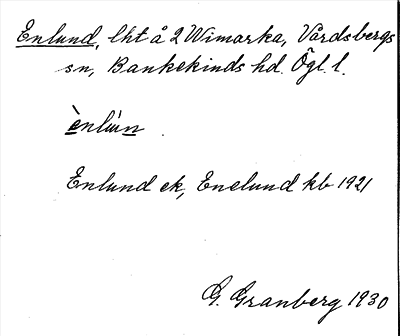 Enlund, lht å 2 Wimarka, Vårdsbergs
sn, Bankekinds hd. Ögl. l.
ènlùn .
Enlund ek, Enelund kb 1921
G. Granberg 1930